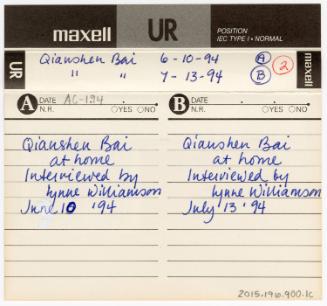 maxell UR POSITION
IEC TYPE I • NORMAL
UR Qianshen Bai 6-10-94 A 2 maxell
" " 7-13-94 B
A DATE AC-194
N.R. YES NO
B DATE
N.R. YES NO
Qianshen Bai
at home
Interviewed by
Lynne Williamson
June 10 '94
Qianshen Bai
at home
Interviewed by
Lynne Williamson
July 13 '94
2015.196.900.1c